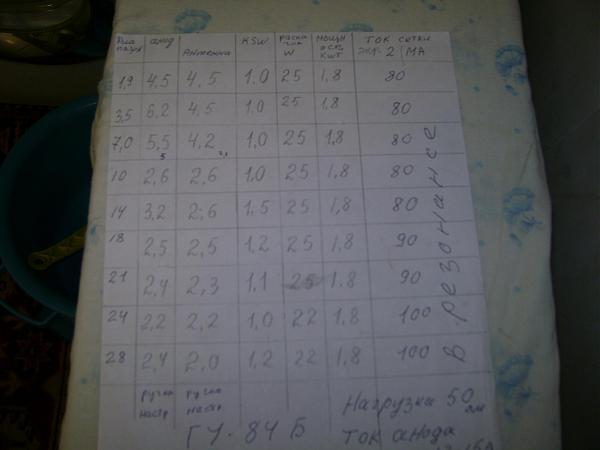 Диапазон анод Антенна KSW раскачка W мощность КWТ ТОК СЕТКИ ЭКР. 2 / МА
1,9 4,5 4,5 1,0 25 1,8 80
3,5 6,2 4,5 1,0 25 1,8 80
7,0 5,5 4,2 1,0 25 1,8 80
10 2,6 2,6 1,0 25 1,8 80
14 3,2 2,6 1,5 25 1,8 80
18 2,5 2,5 1,2 25 1,8 90
21 2,4 2,3 1,1 25 1,8 90
24 2,2 2,2 1,0 22 1,8 100
28 2,4 2,0 1,2 22 1,8 100
В резонансе
ручка настр ручка настр
Нагрузка 50 ом
ГУ-84Б ТОК анода